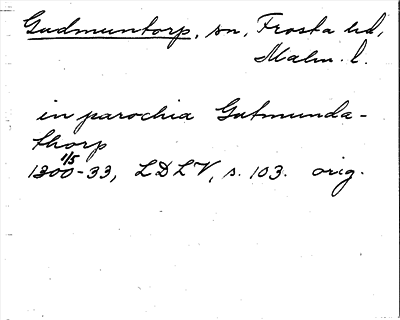 Gudmuntorp, sn, Frosta hd,
Malm. l.
in parochia Gutmunda-
thorp
1/5
1300-33, LDLV, s. 103. orig.